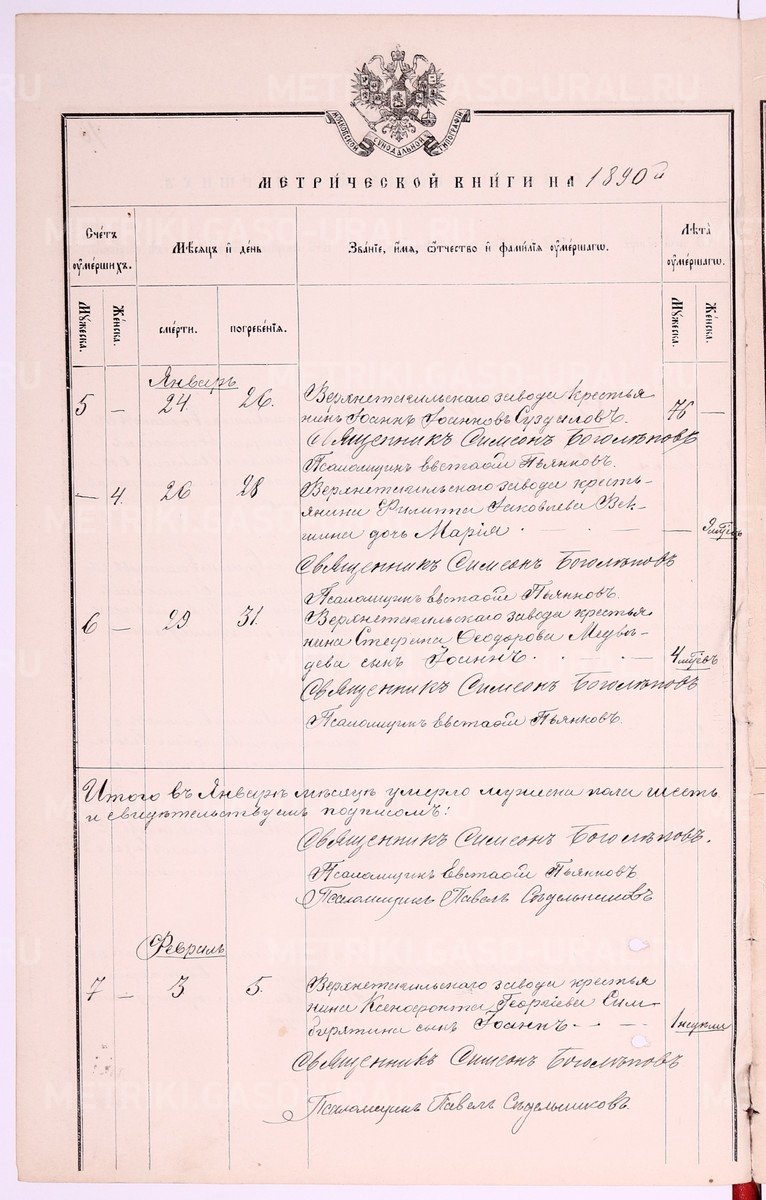 МОСКОВСКОЙ СѴНОДАЛЬНОЙ ТИПОГРАФІИ
МЕТРИ́ЧЕСКОЙ КНИ́ГИ НА 1890 й
Сче́тъ ᲂу҆ме́ршихъ.
Мѣ́сяцъ и҆ де́нь
Зва́нїе, и҆́мѧ, ѻ҆́тчество и҆ фами́лїѧ ᲂу҆ме́ршагѡ.
Лѣ́та ᲂу҆ме́ршагѡ.
Мꙋ́жеска. Же́нска. сме́рти. погребе́нїѧ. Мꙋ́жеска. Же́нска.
Январь
5 — 24 26. Верхнетагильскаго завода крестья 76 —
нинъ Іоаннъ Іоанновъ Суздаловъ.
Священникъ Симеонъ Боголѣповъ
Псаломщикъ Евстафій Пьянковъ.
— 4. 26 28 Верхнетагильскаго завода кресть-
янина Филиппа Іаковлева Век-
шина дочь Марія —
Священникъ Симеонъ Боголѣповъ
Псаломщикъ Евстафій Пьянковъ.
6 — 29 31. Верхнетагильскаго завода крестья
нина Стефана Ѳеодорова Медвѣ-
дева сынъ Іоаннъ. 4
Священникъ Симеонъ Боголѣповъ
Псаломщикъ Евстафій Пьянковъ.
Итого въ Январѣ мѣсяцѣ умерло мужеска пола шесть
и свидѣтельствуемъ подписомъ:
Священникъ Симеонъ Боголѣповъ.
Псаломщикъ Евстафій Пьянковъ
Псаломщикъ Павелъ Сѣдельниковъ
Февраль
7 — 3 5. Верхнетагильскаго завода крестья
нина Ксенофонта Георгіева Сим-
бирятина сынъ Іоаннъ 1 недѣли
Священникъ Симеонъ Боголѣповъ
Псаломщикъ Павелъ Сѣдельниковъ.